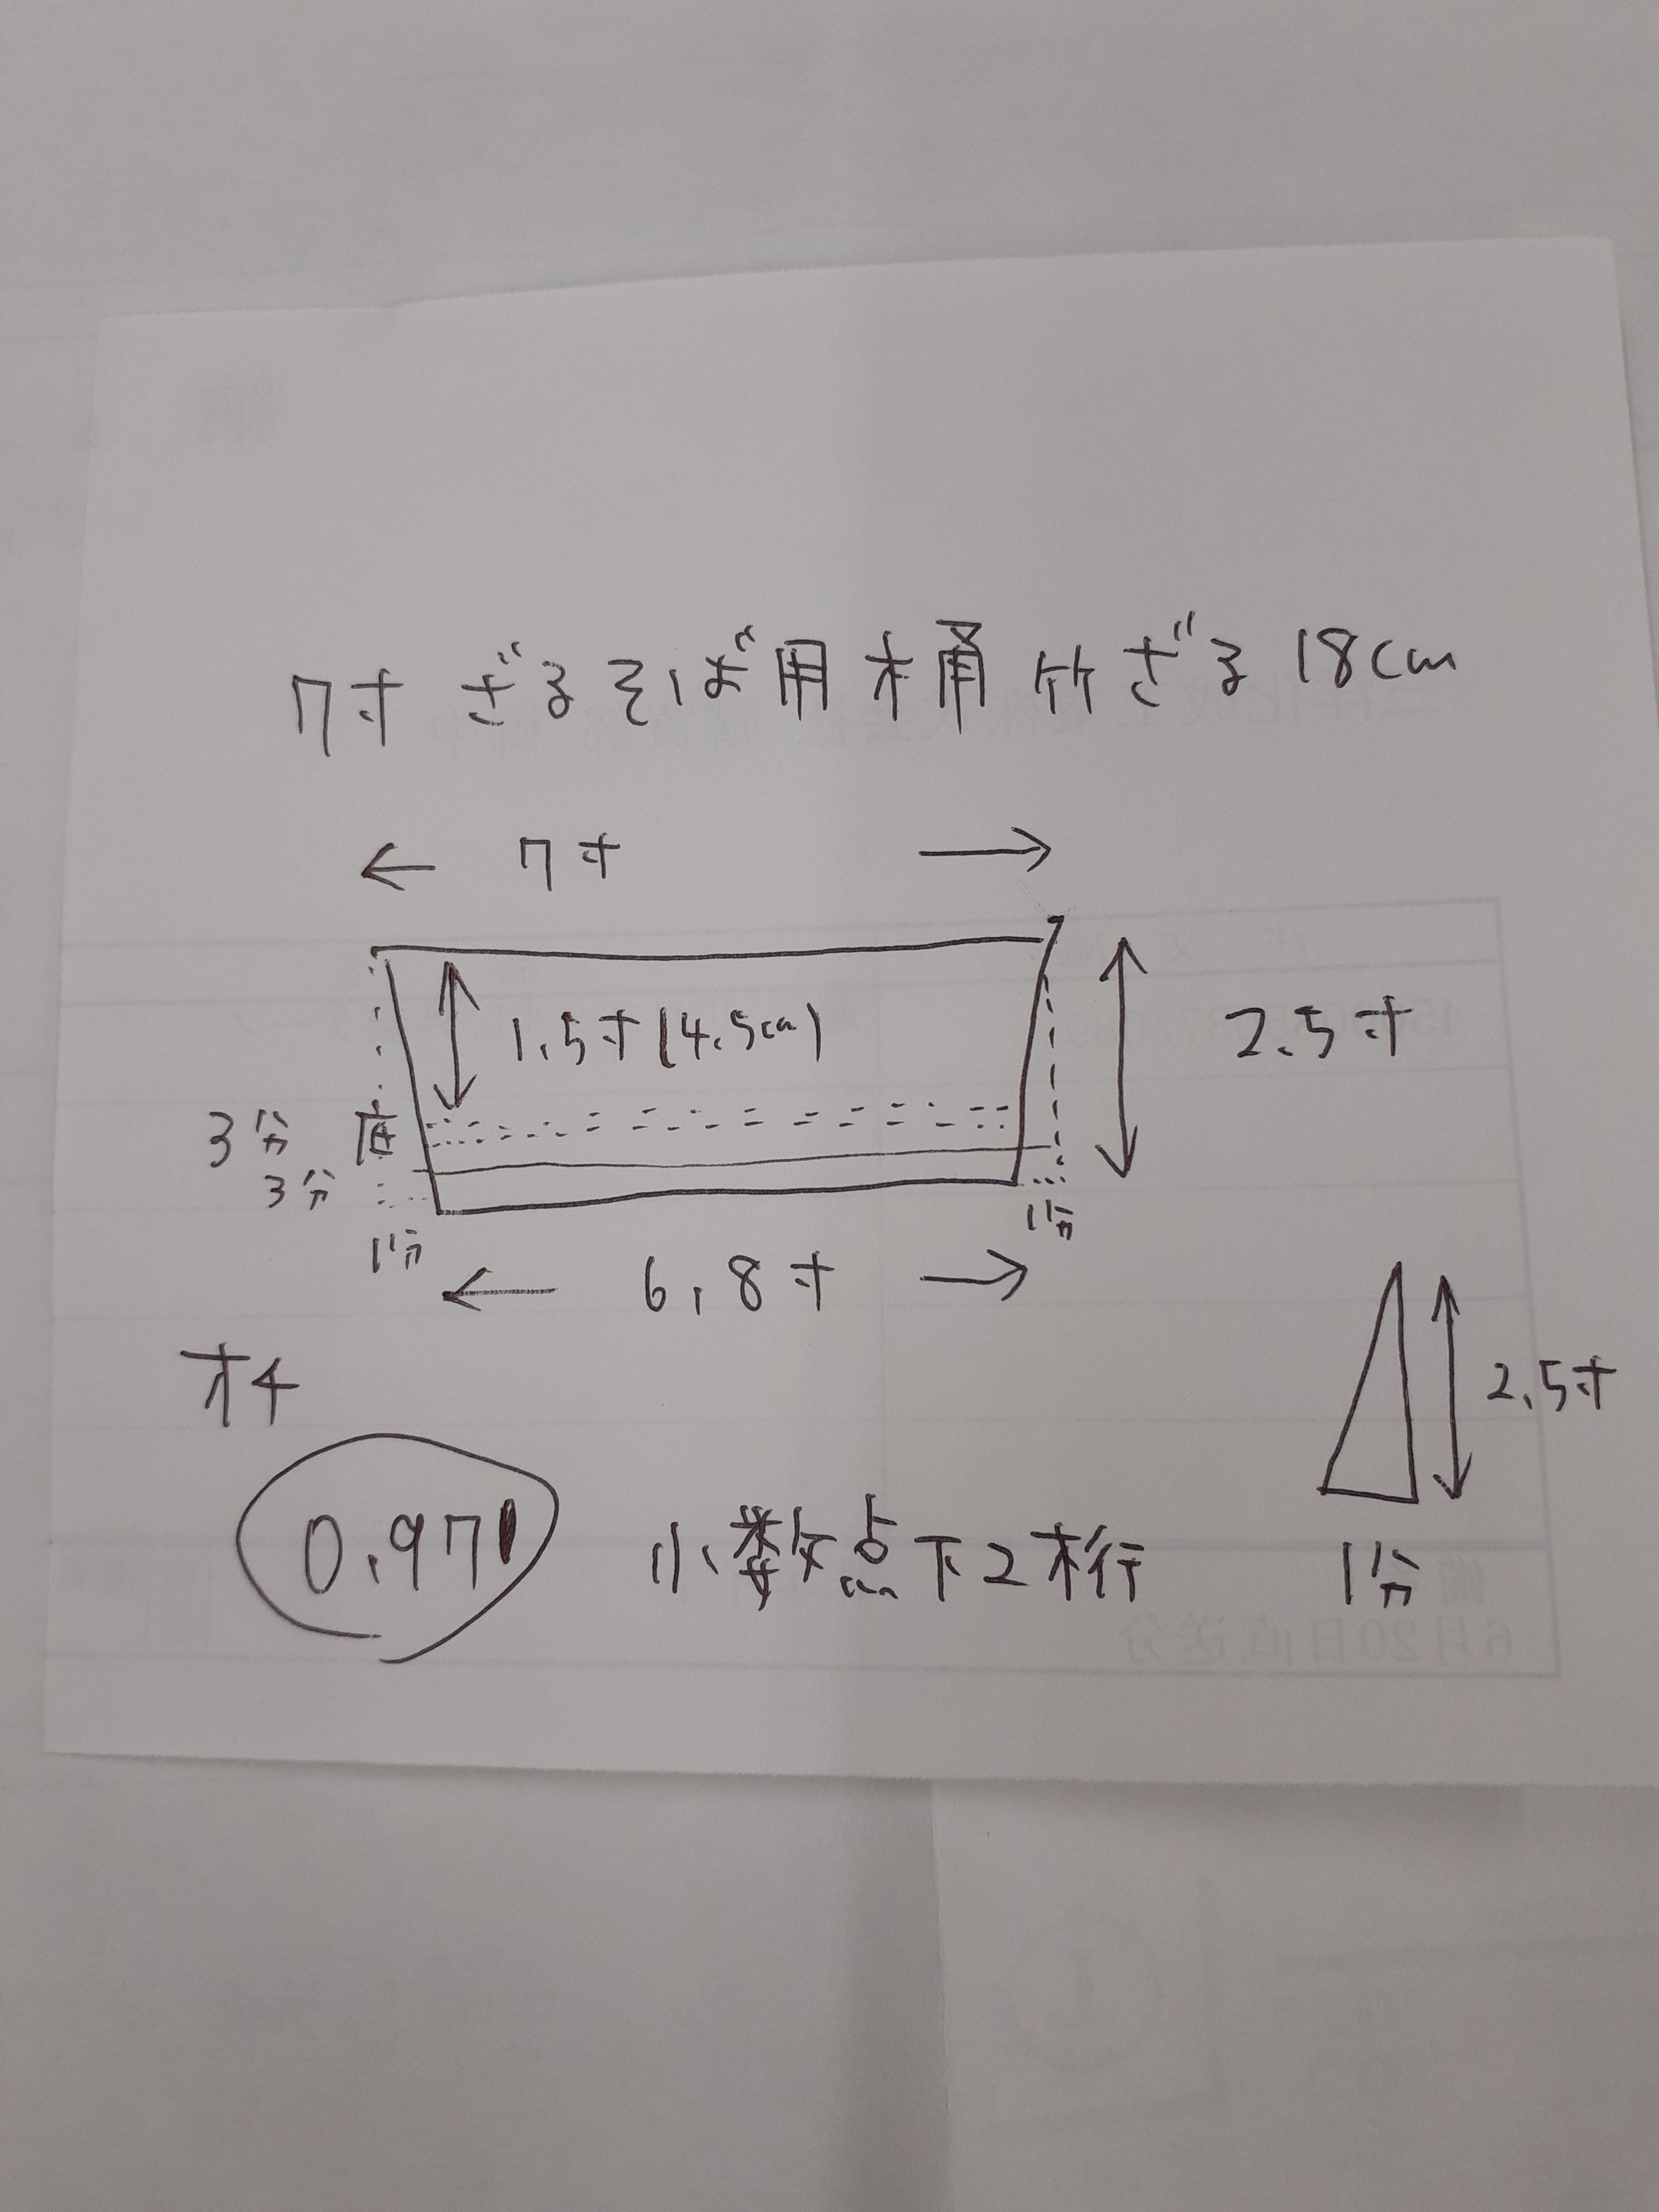 7寸 ざるそば用桶 竹ざる 18cm
← 7寸 →
1.5寸(4.5cm)
2.5寸
3分 底
3分
1分
1分
← 6.8寸 →
オチ
2.5寸
0.97
小数点下2桁
1分
6月20日直送分